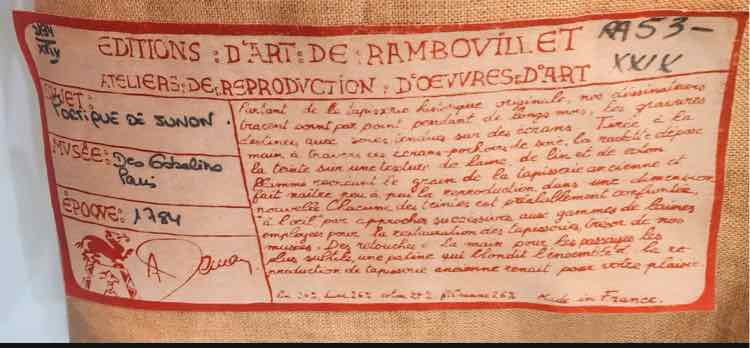 EDITIONS : D'ART : DE : RAMBOVILLET
RA 53-
XXIX
ATELIERS : DE : REPRODVCTION : D'OEVVRES : D'ART
SUJET :
PORTIQUE DE JUNON.
MVSÉE : Des Gobelins
Paris
ÉPOQVE : 1784
Partant de la tapisserie historique originale, nos dessinateurs
tracent point par point pendant de longs mois, les gravures
destinées aux soies tendues sur des écrans. Tirée à la
main à travers ces écrans de soie, la
la teinte sur une texture de laine, de lin et de
le grain de la tapisserie ancienne et
fait naître peu à peu la reproduction dans une dimension
nouvelle. Chacune des teintes est préalablement
"à l'œil" par approches successives aux gammes de laines
employées pour la restauration des tapisseries, trésor de nos
musées. Des retouches à la main pour les passages les
plus subtils, une patine qui blondit l'ensemble et la re
production de tapisserie ancienne renaît pour votre plaisir.
Made in France.